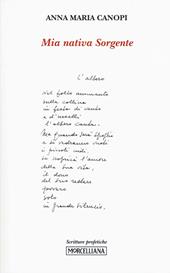 ANNA MARIA CANOPI
Mia nativa Sorgente
L'albero
Nel folto ammanto
sulla collina
in festa di canti
e d'uccelli
l'albero canta.
Ma quando sarà spoglio
e si vedranno vuoti
i piccoli nidi,
si scoprirà l'amore
della sua vita,
il dono
del suo restare
povero
solo
in grande silenzio.
Scritture profetiche
MORCELLIANA